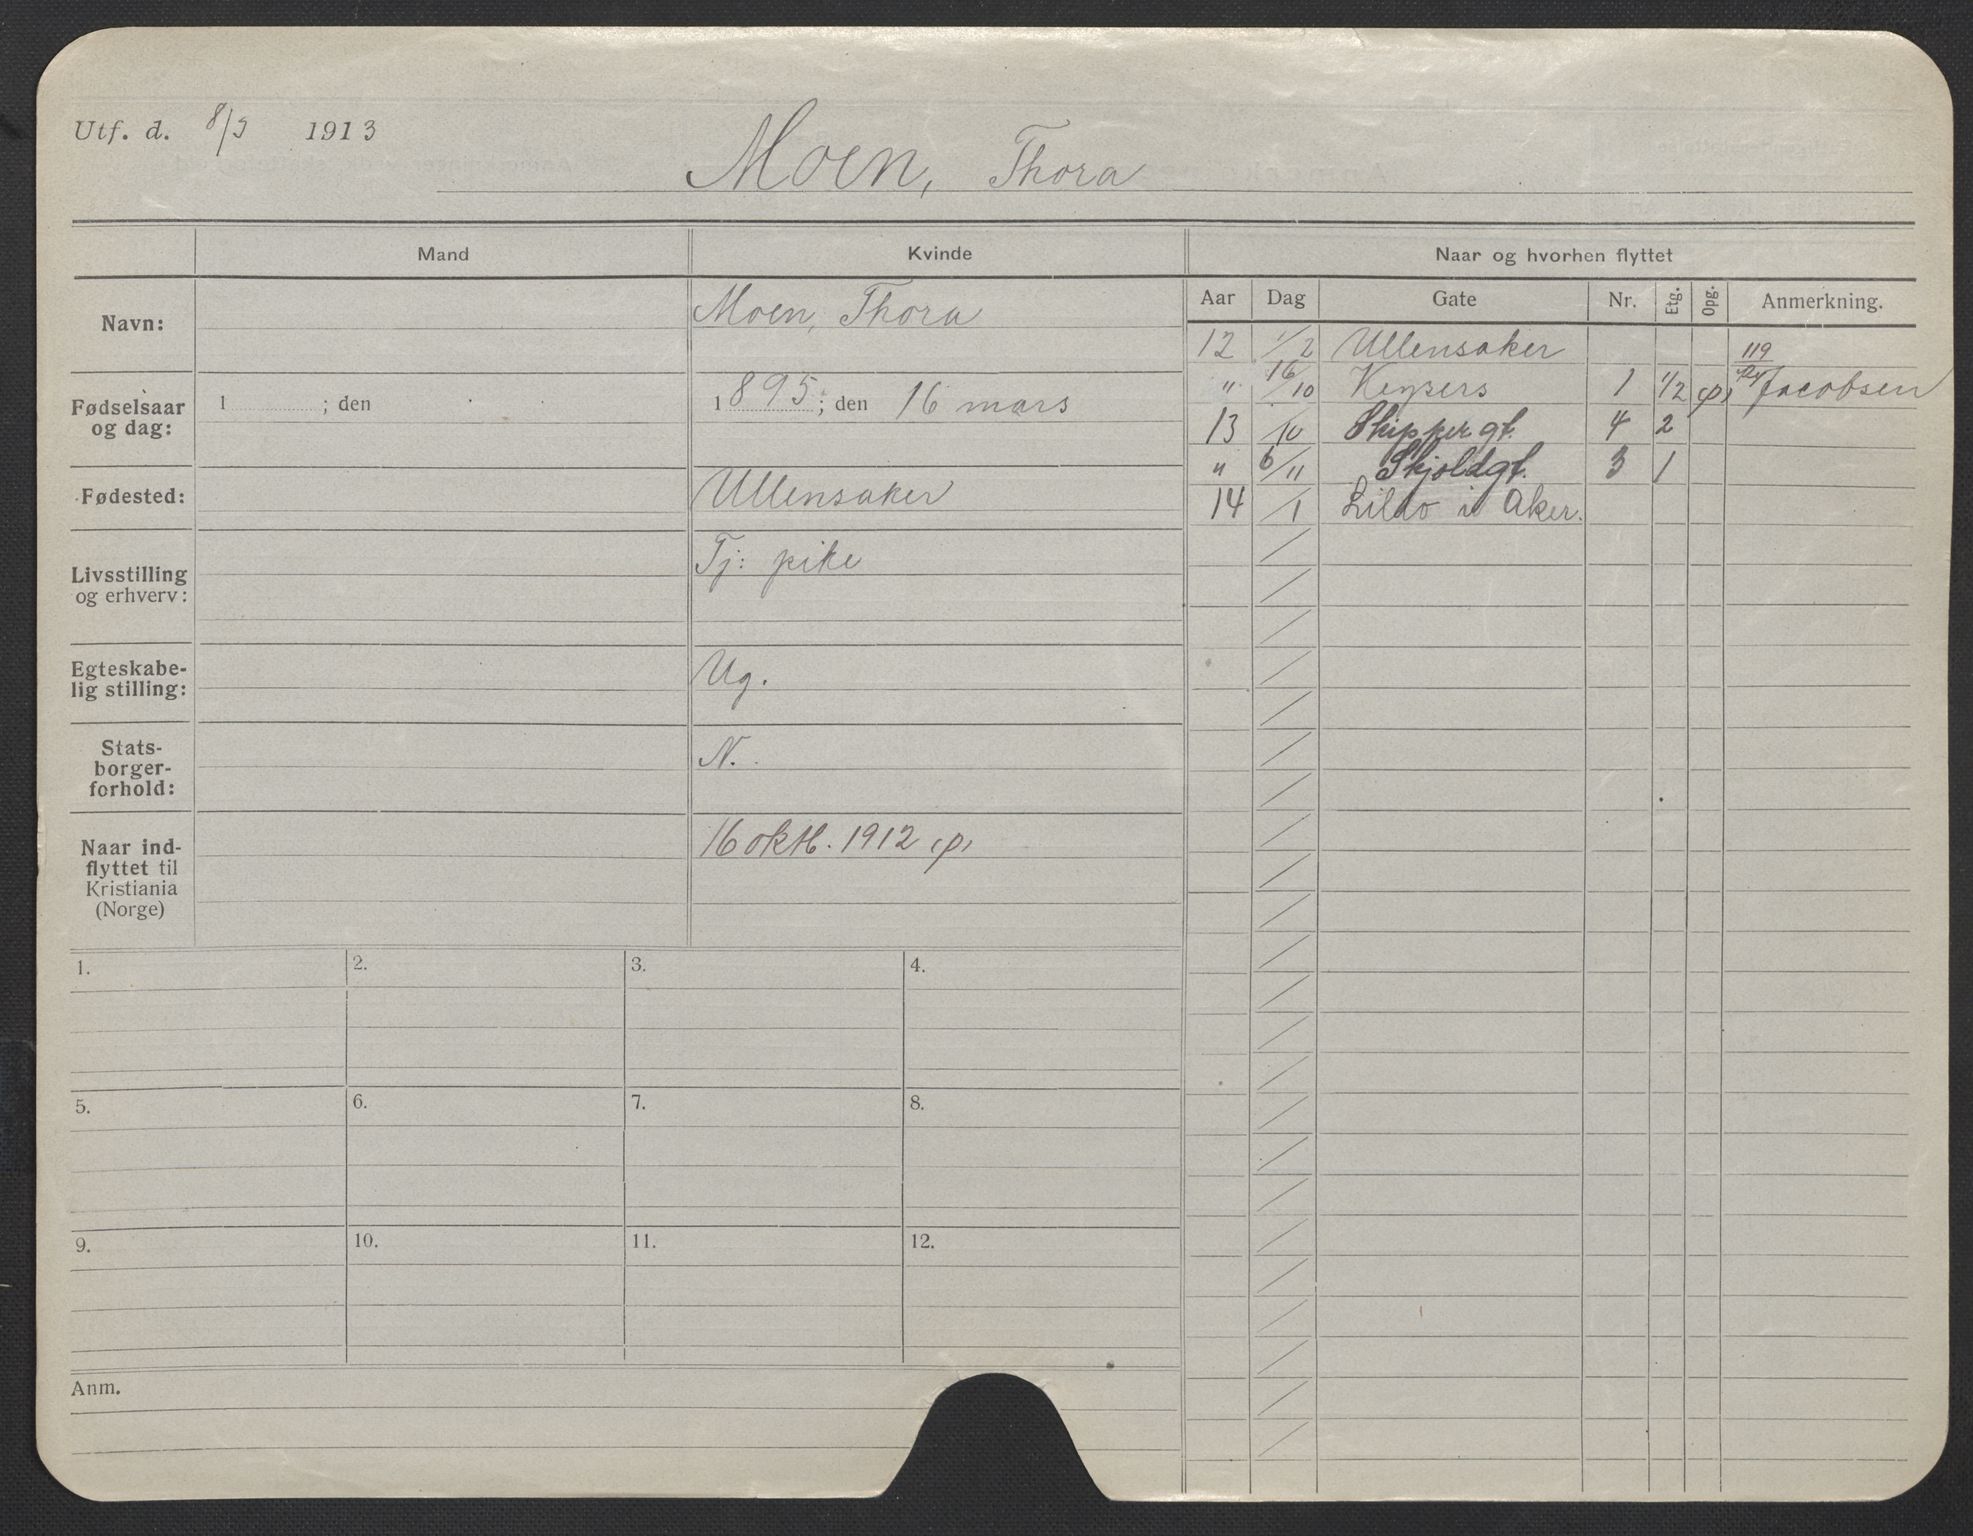 Utf. d. 8/3 1913
Moen, Thora
Mand
Kvinde
Naar og hvorhen flyttet
Navn:
Moen, Thora
Fødselsaar og dag:
1 ; den
1895; den 16 mars
Fødested:
Ullensaker
Livsstilling og erhverv:
Tj: pike
Egteskabe-
lig stilling:
Ug.
Stats-
borger-
forhold:
N.
Naar ind-
flyttet til
Kristiania
(Norge)
16 oktb. 1912
1. 2. 3. 4.
5. 6. 7. 8.
9. 10. 11. 12.
Anm.
Aar Dag Gate Nr. Etg. Opg. Anmerkning.
12 1/2 Ullensaker
119
" 16/10 Keysers 1 1/2 Jacobsen
13 /10 Skippergt. 4 2
" 6/11 Skjoldgt. 3 1
14 /1 i Aker.